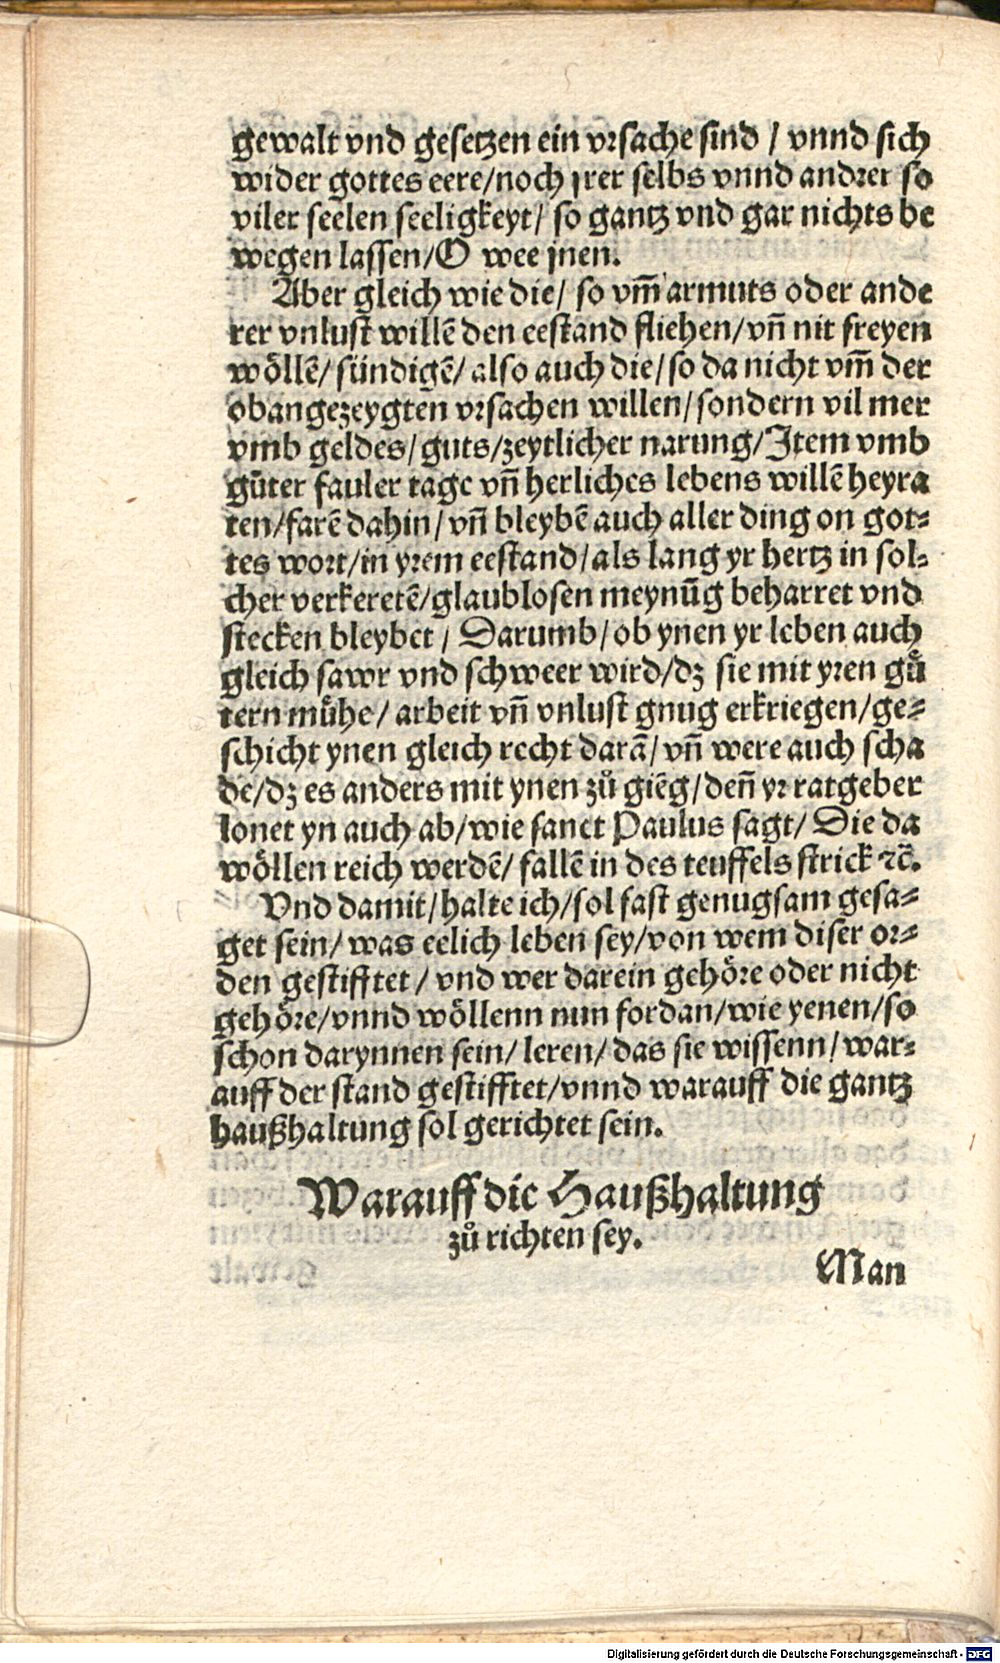 gewalt vnd gesetzen ein vrsache sind / vnnd sich
wider gottes eere/noch jrer selbs vnnd andrer so
viler seelen seeligkeyt/ so gantz vnd gar nichts be
wegen lassen/O wee jnen.
Aber gleich wie die/ so vm̄ armuts oder ande
rer vnlust willē den eestand fliehen/vn̄ nit freyen
wöllē/ sündigē/ also auch die/so da nicht vm̄ der
obangezeygten vrsachen willen/sondern vil mer
vmb geldes/guts/zeytlicher narung/Item vmb
gůter fauler tage vn̄ herliches lebens willē heyra
ten/farē dahin/vn̄ bleybē auch aller ding on got⸗
tes wort/in yrem eestand/als lang yr hertz in sol⸗
cher verkeretē/glaublosen meynūg beharret vnd
stecken bleybet / Darumb/ob ynen yr leben auch
gleich sawr vnd schweer wird/dz sie mit yren gů
tern mühe/ arbeit vn̄ vnlust gnug erkriegen/ge⸗
schicht ynen gleich recht darā/vn̄ were auch scha
de/dz es anders mit ynen zů giēg/den̄ yr ratgeber
lonet yn auch ab/wie sanct Paulus sagt/ Die da
wöllen reich werdē/ fallē in des teuffels strick ꝛc̄.
Vnd damit/halte ich/sol fast genugsam gesa⸗
get sein/ was eelich leben sey/von wem diser or⸗
den gestifftet/ vnd wer darein gehöre oder nicht
gehöre/vnnd wöllenn nun fordan/wie yenen/so
schon darynnen sein/ leren/das sie wissenn/war⸗
auff der stand gestifftet/vnnd warauff die gantz
haußhaltung sol gerichtet sein.
Warauff die Haußhaltung
zů richten sey.
Man
Digitalisierung gefördert durch die Deutsche Forschungsgemeinschaft - DFG